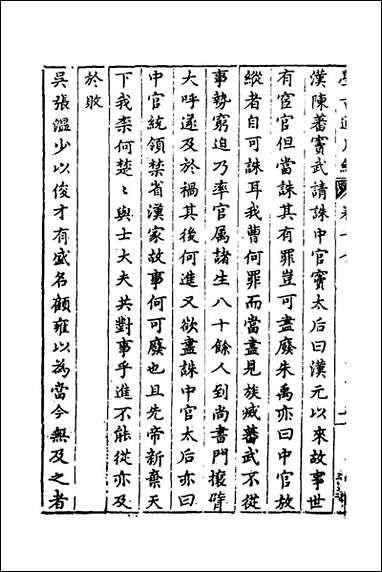 漢陳蕃竇武請誅中官竇太后曰漢元以來故事世
有宦官但當誅其有罪豈可盡廢朱禹亦曰中官放
縱者自可誅耳我曹何罪而當盡見族滅蕃武不從
事勢窮迫乃率官属諸生八十餘人到尚書門攘臂
大呼遂及於禍其後何進又欲盡誅中官太后亦曰
中官統領禁省漢家故事何可廢也且先帝新棄天
下我柰何楚〻與士大夫共對事乎進不能從亦及
於敗
吳張溫少以俊才有盛名顧雍以為當今無及之者